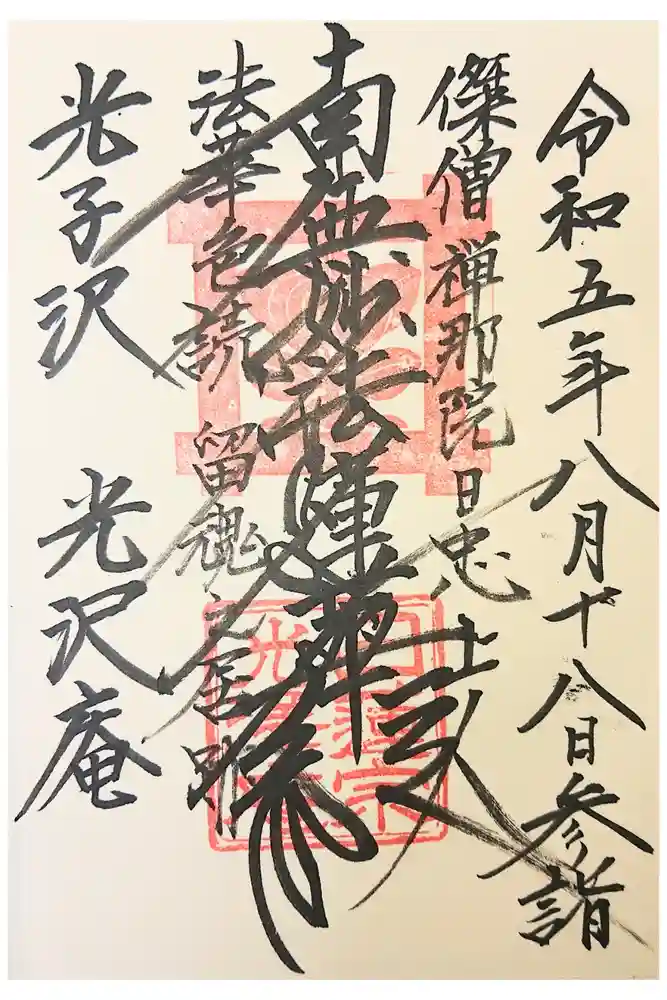 令和五年八月十八日参詣
傑僧 禅那院日忠上人
南無妙法蓮華経
法華色読 留魂之居跡
光子沢 光沢庵
日蓮宗